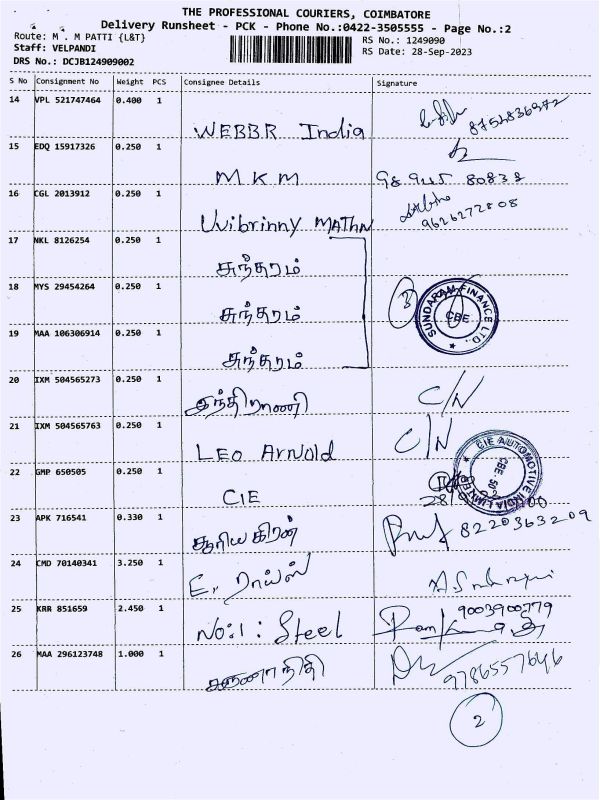 THE PROFESSIONAL COURIERS, COIMBATORE
Delivery Runsheet - PCK - Phone No.:0422-3505555 - Page No.:2
Route: M . M PATTI {L&T} RS No.: 1249090
Staff: VELPANDI RS Date: 28-Sep-2023
DRS No.: DCJB124909002
S No Consignment No Weight PCS Consignee Details Signature
14 VPL 521747464 0.400 1 WEBBR India 8752836972
15 EDQ 15917326 0.250 1 MKM 80838
16 CGL 2013912 0.250 1 MATHN 9626272808
17 NKL 8126254 0.250 1 சுந்தரம்
18 MYS 29454264 0.250 1 சுந்தரம் 3 SUNDARAM FINANCE LTD., CBE
19 MAA 106306914 0.250 1 சுந்தரம்
20 IXM 504565273 0.250 1 இந்திராணி C/N
21 IXM 504565763 0.250 1 LEO ArNold C/N
22 GMP 650505 0.250 1 CIE CIE AUTOMOTIVE INDIA LIMITED CBE 50
23 APK 716541 0.330 1 சூரிய கிரன் 8220363209
24 CMD 70140341 3.250 1 E.
25 KRR 851659 2.450 1 No:1: Steel 9003900779
26 MAA 296123748 1.000 1 கருணாநிதி 9786557646
2